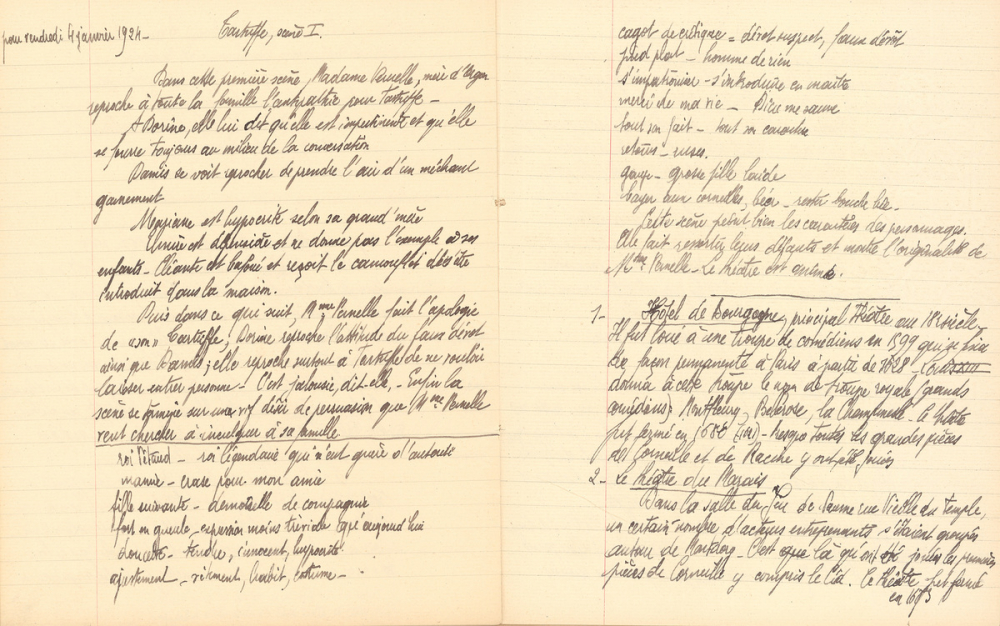 pour vendredi 4 janvier 1924 -
Tartuffe, scène I.
Dans cette première scène, Madame Pernelle, mère d'Orgon
reproche à toute la famille l'antipathie pour Tartuffe -
A Dorine, elle lui dit qu'elle est impertinente et qu'elle
se fourre toujours au milieu de la conversation
Damis se voit reprocher de prendre l'air d'un méchant
garnement
Mariane est hypocrite selon sa grand'mère
Elmire est dépensière et ne donne pas l'exemple à ses
enfants - Cléante est bafoué et reçoit le camouflet d'être
introduit dans la maison.
Puis dans ce qui suit, Mme Pernelle fait l'apologie
de "son" Tartuffe, Dorine reproche l'attitude du faux dévot
ainsi que Damis ; elle reproche surtout à Tartuffe de ne vouloir
laisser entrer personne - C'est jalousie, dit-elle, - Enfin la
scène se termine sur un vif désir de persuasion que Mme Pernelle
veut chercher à inculquer à sa famille
roi Pétaud - roi légendaire qui n'eut guère d'autorité
mamie - crase pour mon amie
fille suivante - demoiselle de compagnie
fort en gueule - expression moins triviale qu'aujourd'hui
doucette - tendre, innocent, hypocrite
ajustement, vêtement, habit, costume -
cagot de critique = dévot suspect, faux dévot
pied plat - homme de rien
s'impatroniser - s'introduire en maître
merci de ma vie - Dieu me sauve
tout son fait - tout son caractère
retours - ruses.
gaupe - grosse fille laide
bayer aux corneilles, béer - rester bouche bée -
Cette scène peint bien les caractères des personnages.
Elle fait ressortir leurs défauts et montre l'originalité de
Mme Pernelle - Le théâtre est animé.
1- Hôtel de Bourgogne, principal théâtre au siècle
Il fut loué à une troupe de comédiens en 1599 qui se fixa
de façon permanente à Paris à partir de 1628 -
donna à cette troupe le nom de troupe royale (grands
comédiens) Montfleury, Bellerose, la Champmeslé - le théâtre
fut fermé en - Presque toutes les grandes pièces
de Corneille et de Racine y ont été jouées
2- Le théâtre du Marais
Dans la salle du Jeu de Paume rue Vieille du Temple,
un certain nombre d'acteurs entreprenants s'étaient groupés
autour de Mondory - C'est que là qu'ont été jouées les premières
pièces de Corneille y compris le Cid. Ce théâtre fut fermé
en 1673